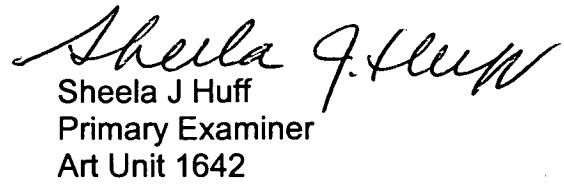 Sheela J. Huff
Sheela J Huff
Primary Examiner
Art Unit 1642